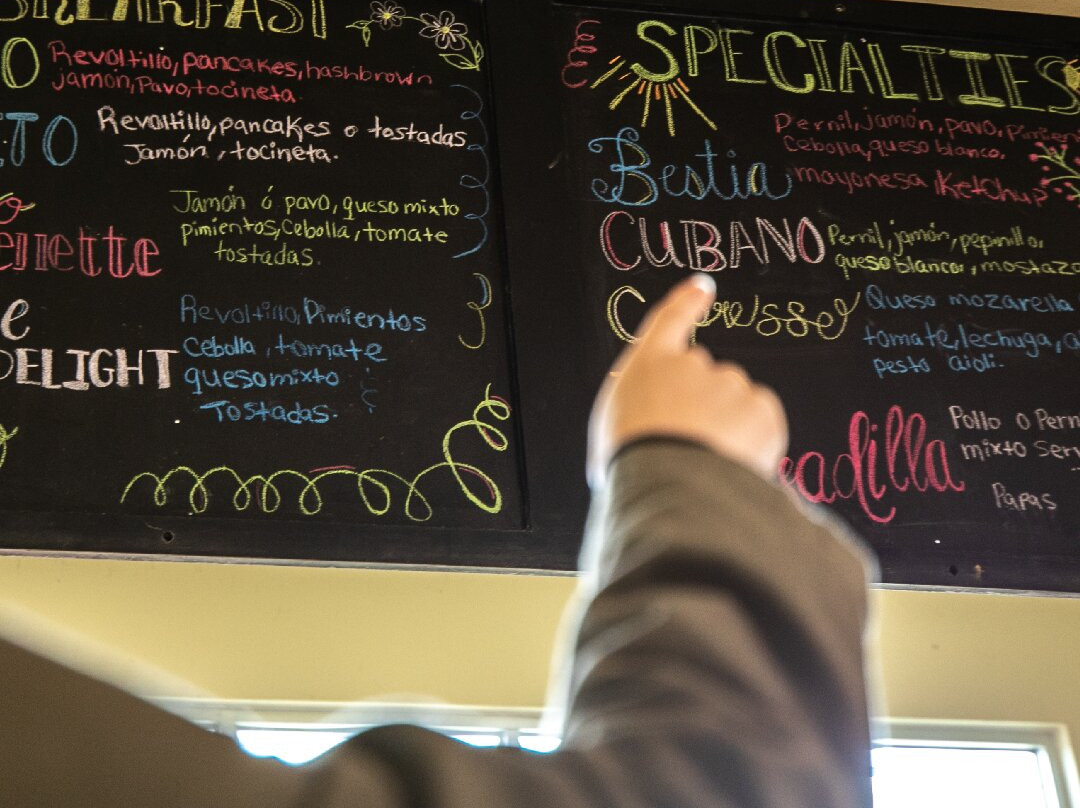 BREAKFAST
O
Revoltillo, pancakes, hashbrown
jamón, Pavo, tocineta.
Revoltillo, pancakes o tostadas
Jamón, tocineta.
Jamón ó pavo, queso mixto
pimientos, Cebolla, tomate
tostadas.
Revoltillo, Pimientos
Cebolla, tomate
queso mixto
Tostadas.
DELIGHT
SPECIALTIES
Bestia
Pernil, jamón, pavo,
Cebolla, queso blanco,
mayonesa, Ketchup
CUBANO
Pernil, jamón, pepinillo,
queso blanco, mostaza
Queso mozarella
tomate, lechuga,
pesto aioli.
Pollo o
mixto
Papas